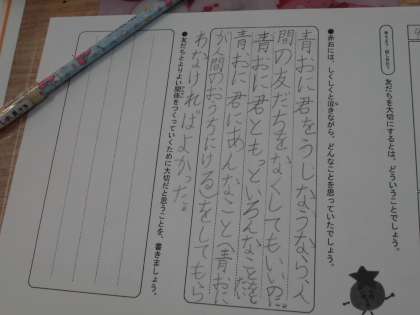 友だちを大切にするとは、どういうことでしょう。
●赤おには、しくしくと泣きながら、どんなことを思っていたでしょう。
青おに君をうしなうなら、人
間の友だちをなくしてもいいのに。
青おに君ともっといろんなこと
青おに君にあんなこと(青おに
が人間のおうちにける)をしてもら
わなければよかった。
●友だちとよりよい関係をつくっていくために大切だと思うことを、書きましょう。